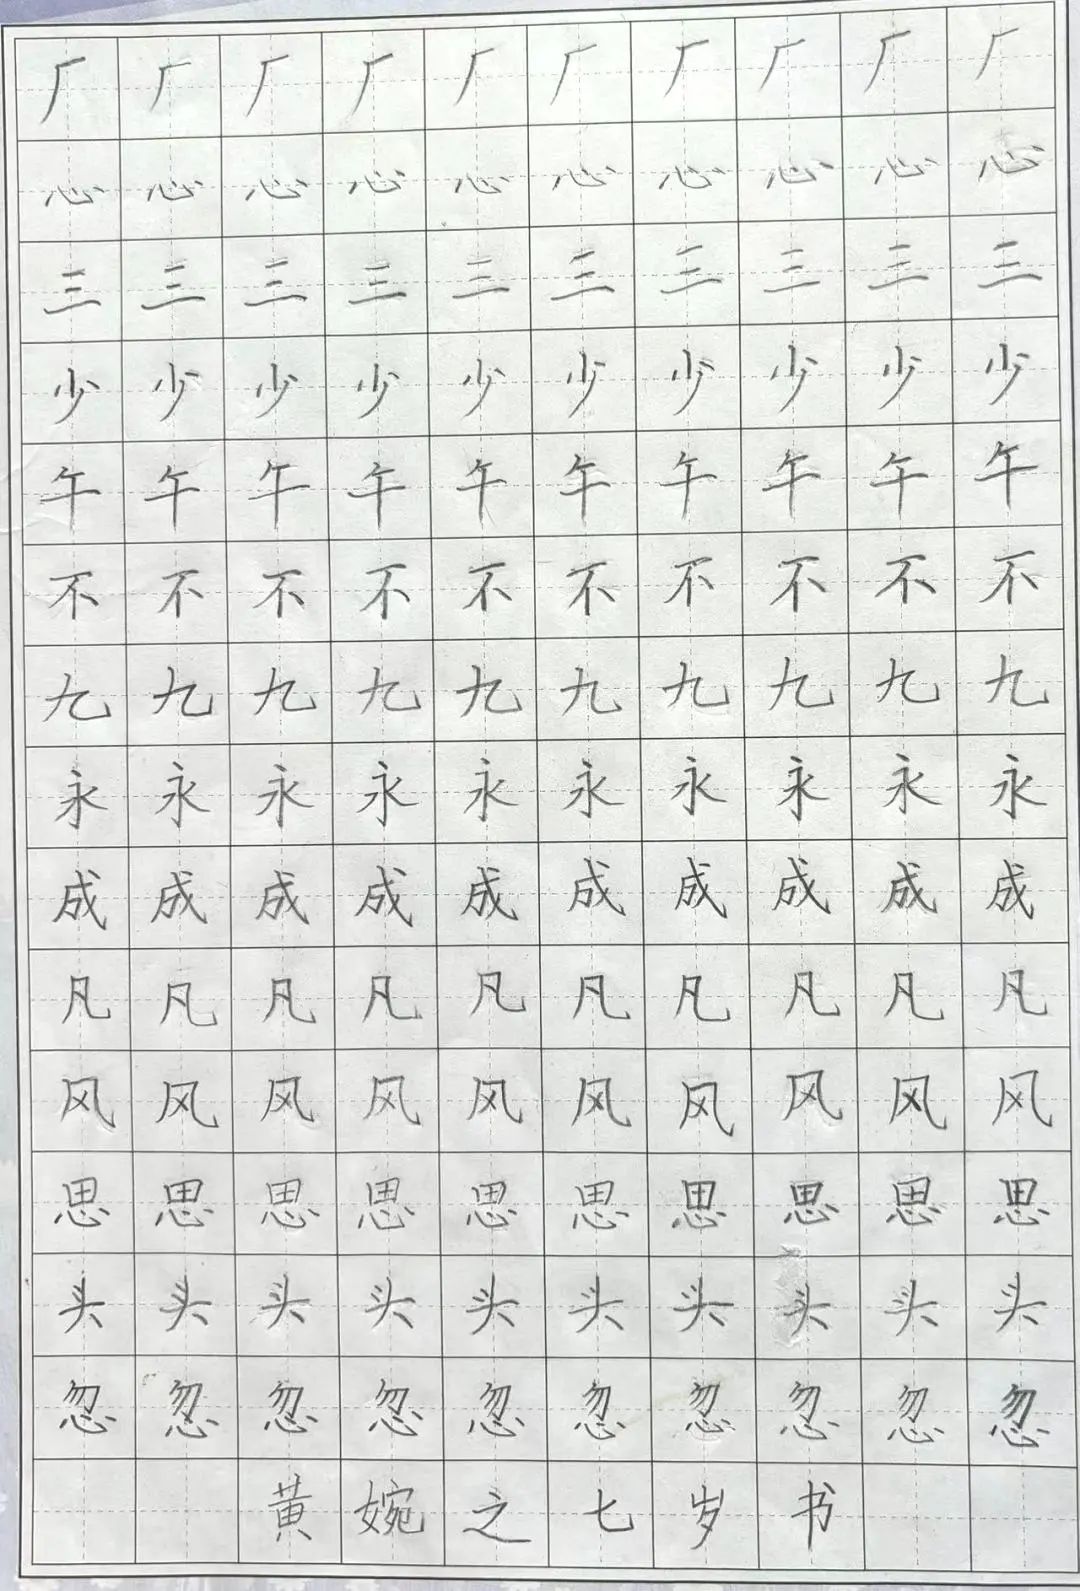 厂厂厂厂厂厂厂厂厂厂
心心心心心心心心心心
三三三三三三三三三三
少少少少少少少少少少
午午午午午午午午午午
不不不不不不不不不不
九九九九九九九九九九
永永永永永永永永永永
成成成成成成成成成成
凡凡凡凡凡凡凡凡凡凡
风风风风风风风风风风
思思思思思思思思思思
头头头头头头头头头头
忽忽忽忽忽忽忽忽忽忽
黄婉之七岁书